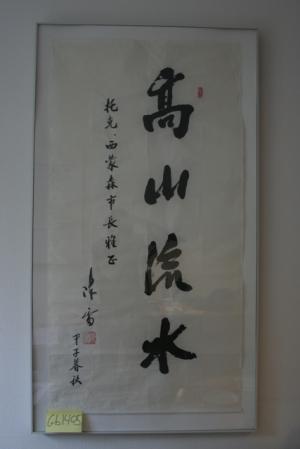 高山流水
托克·西蒙森市長雅正
甲子春秋